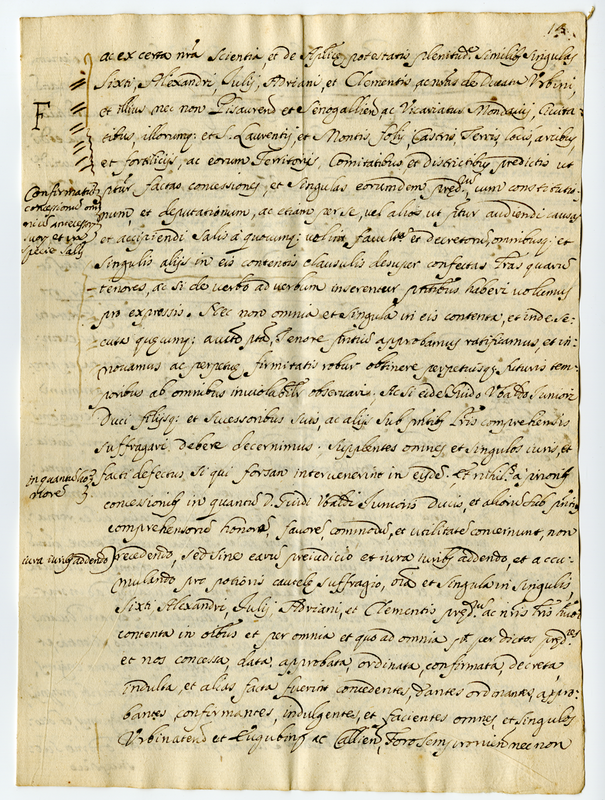 ac ex certa nra scientia et de Aplice potestatis plenitud. Similibus Singulas
F
Sixti, Alexandri, Julij, Adriani, et Clementis, de Ducatu Urbini,
et illius nec non Pisauren et Senogallien ac Vicariatus Mondavij, Civita-
tibus, illorumq: et S. Laurentij, et Montis Castris, Terris, locis, arcibus
et fortilicijs, ac eorum Territorijs, Comitatibus, et districtibus predictis ut
Confirmatio
pfitur factas concessiones, et singulas eorumdem pred. cum constitutio-
concessionu omi
num, et deputationum, ac etiam per se, vel alios ut pfitur audiendi causas
et accipiendi Salis a quocumq: et decretorum, omnibusq: et
specie Salis
singulis alijs in eis contentis clausulis desuper confectas lras quaru
tenores, ac si de verbo ad verbum insererentur pntibus haberi volumus
pro expressis. Nec non omnia et singula in eis contenta, et inde se-
cuta quecumq: aucte pta, Tenore pntiu approbamus ratificamus, et in-
novamus ac perpetue firmitatis robur obtinere perpetuisq; futuris tem-
poribus ab omnibus inviolabilr observari. Ac si eidem Guido Ubaldo Juniori
Duci filijsq: et Successoribus suis, ac alijs sub pntibus lris comprehensis
suffragari debere decernimus. Supplentes omnes, et singulos iuris, et
in quantu
facti defectus, si qui forsan intervenerint in eisde. Et nihil a prioribus
concessionibus in quantu D. Guidi Ubaldi Junioris Ducis, et alioru sub pntibus
comprehensoru honore, favore, commodu, et utilitate concernunt, non
iura iuribus addendo
recedendo, sed sine earu preiudicio et iura iuribus addendo, et accu-
mulando pro potioris cautele suffragio, oia et singula in singulis
Sixti Alexandri, Julij Adriani, et Clementis pred. ac nris lris
contenta in oibus et per omnia et quo ad omnia per dictos pred.
et nos concessa, data, approbata, ordinata, confirmata, decreta
indulta, et alias facta fuerint concedentes, dantes ordinantes, appro-
bantes, confirmantes, indulgentes, et facientes omnes, et singulos
Urbinaten et Eugubin ac Callien, Forosempronien nec non